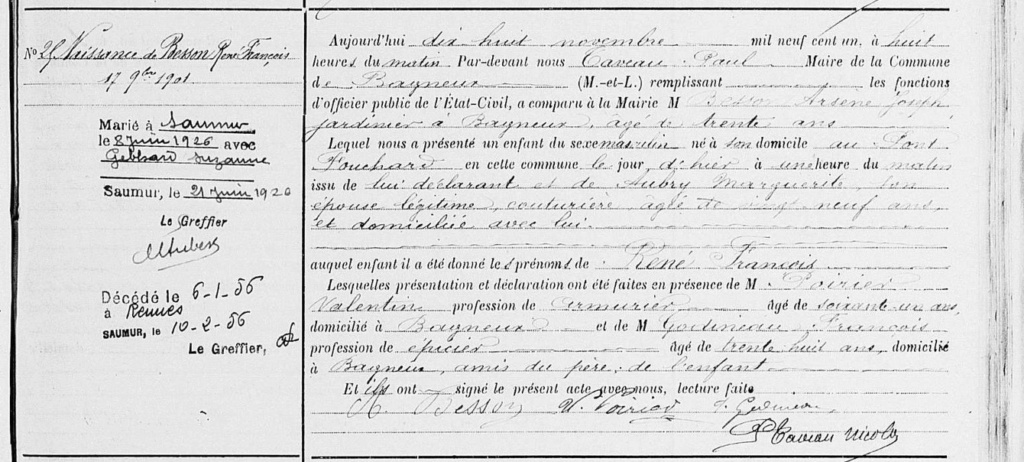 N° 25 Naissance de Besson René François
17 9bre 1901
Marié à Saumur
le 8 Juin 1926 avec
Suzanne
Saumur, le 21 Juin 1926
Le Greffier
Décédé le 6-1-56
à Rennes
SAUMUR, le 10-2-56
Le Greffier,
Aujourd'hui dix huit novembre mil neuf cent un, à huit
heures du matin. Par-devant nous Caveau Paul Maire de la Commune
de Bagneux (M.-et-L.) remplissant les fonctions
d'officier public de l'État-Civil, a comparu à la Mairie M Besson Arsène Joseph
jardinier à Bagneux, âgé de trente ans
Lequel nous a présenté un enfant du sexe masculin né à son domicile au Pont
Fouchard en cette commune le jour d'hier à une heure du matin
issu de lui déclarant et de Aubry Marguerite, son
épouse légitime, couturière, agée de vingt neuf ans
et domiciliée avec lui.
auquel enfant il a été donné les prénoms de René François
Lesquelles présentation et déclaration ont été faites en présence de M. Poirier
Valentin profession de armurier âgé de soixante un ans,
domicilié à Bagneux et de M Godineau François
profession de épicier âgé de trente huit ans, domicilié
à Bagneux, amis du père de l'enfant
Et ils ont signé le présent acte avec nous, lecture faite
A. Besson V. Poirier f. Godineau
P Caveau Nicolas